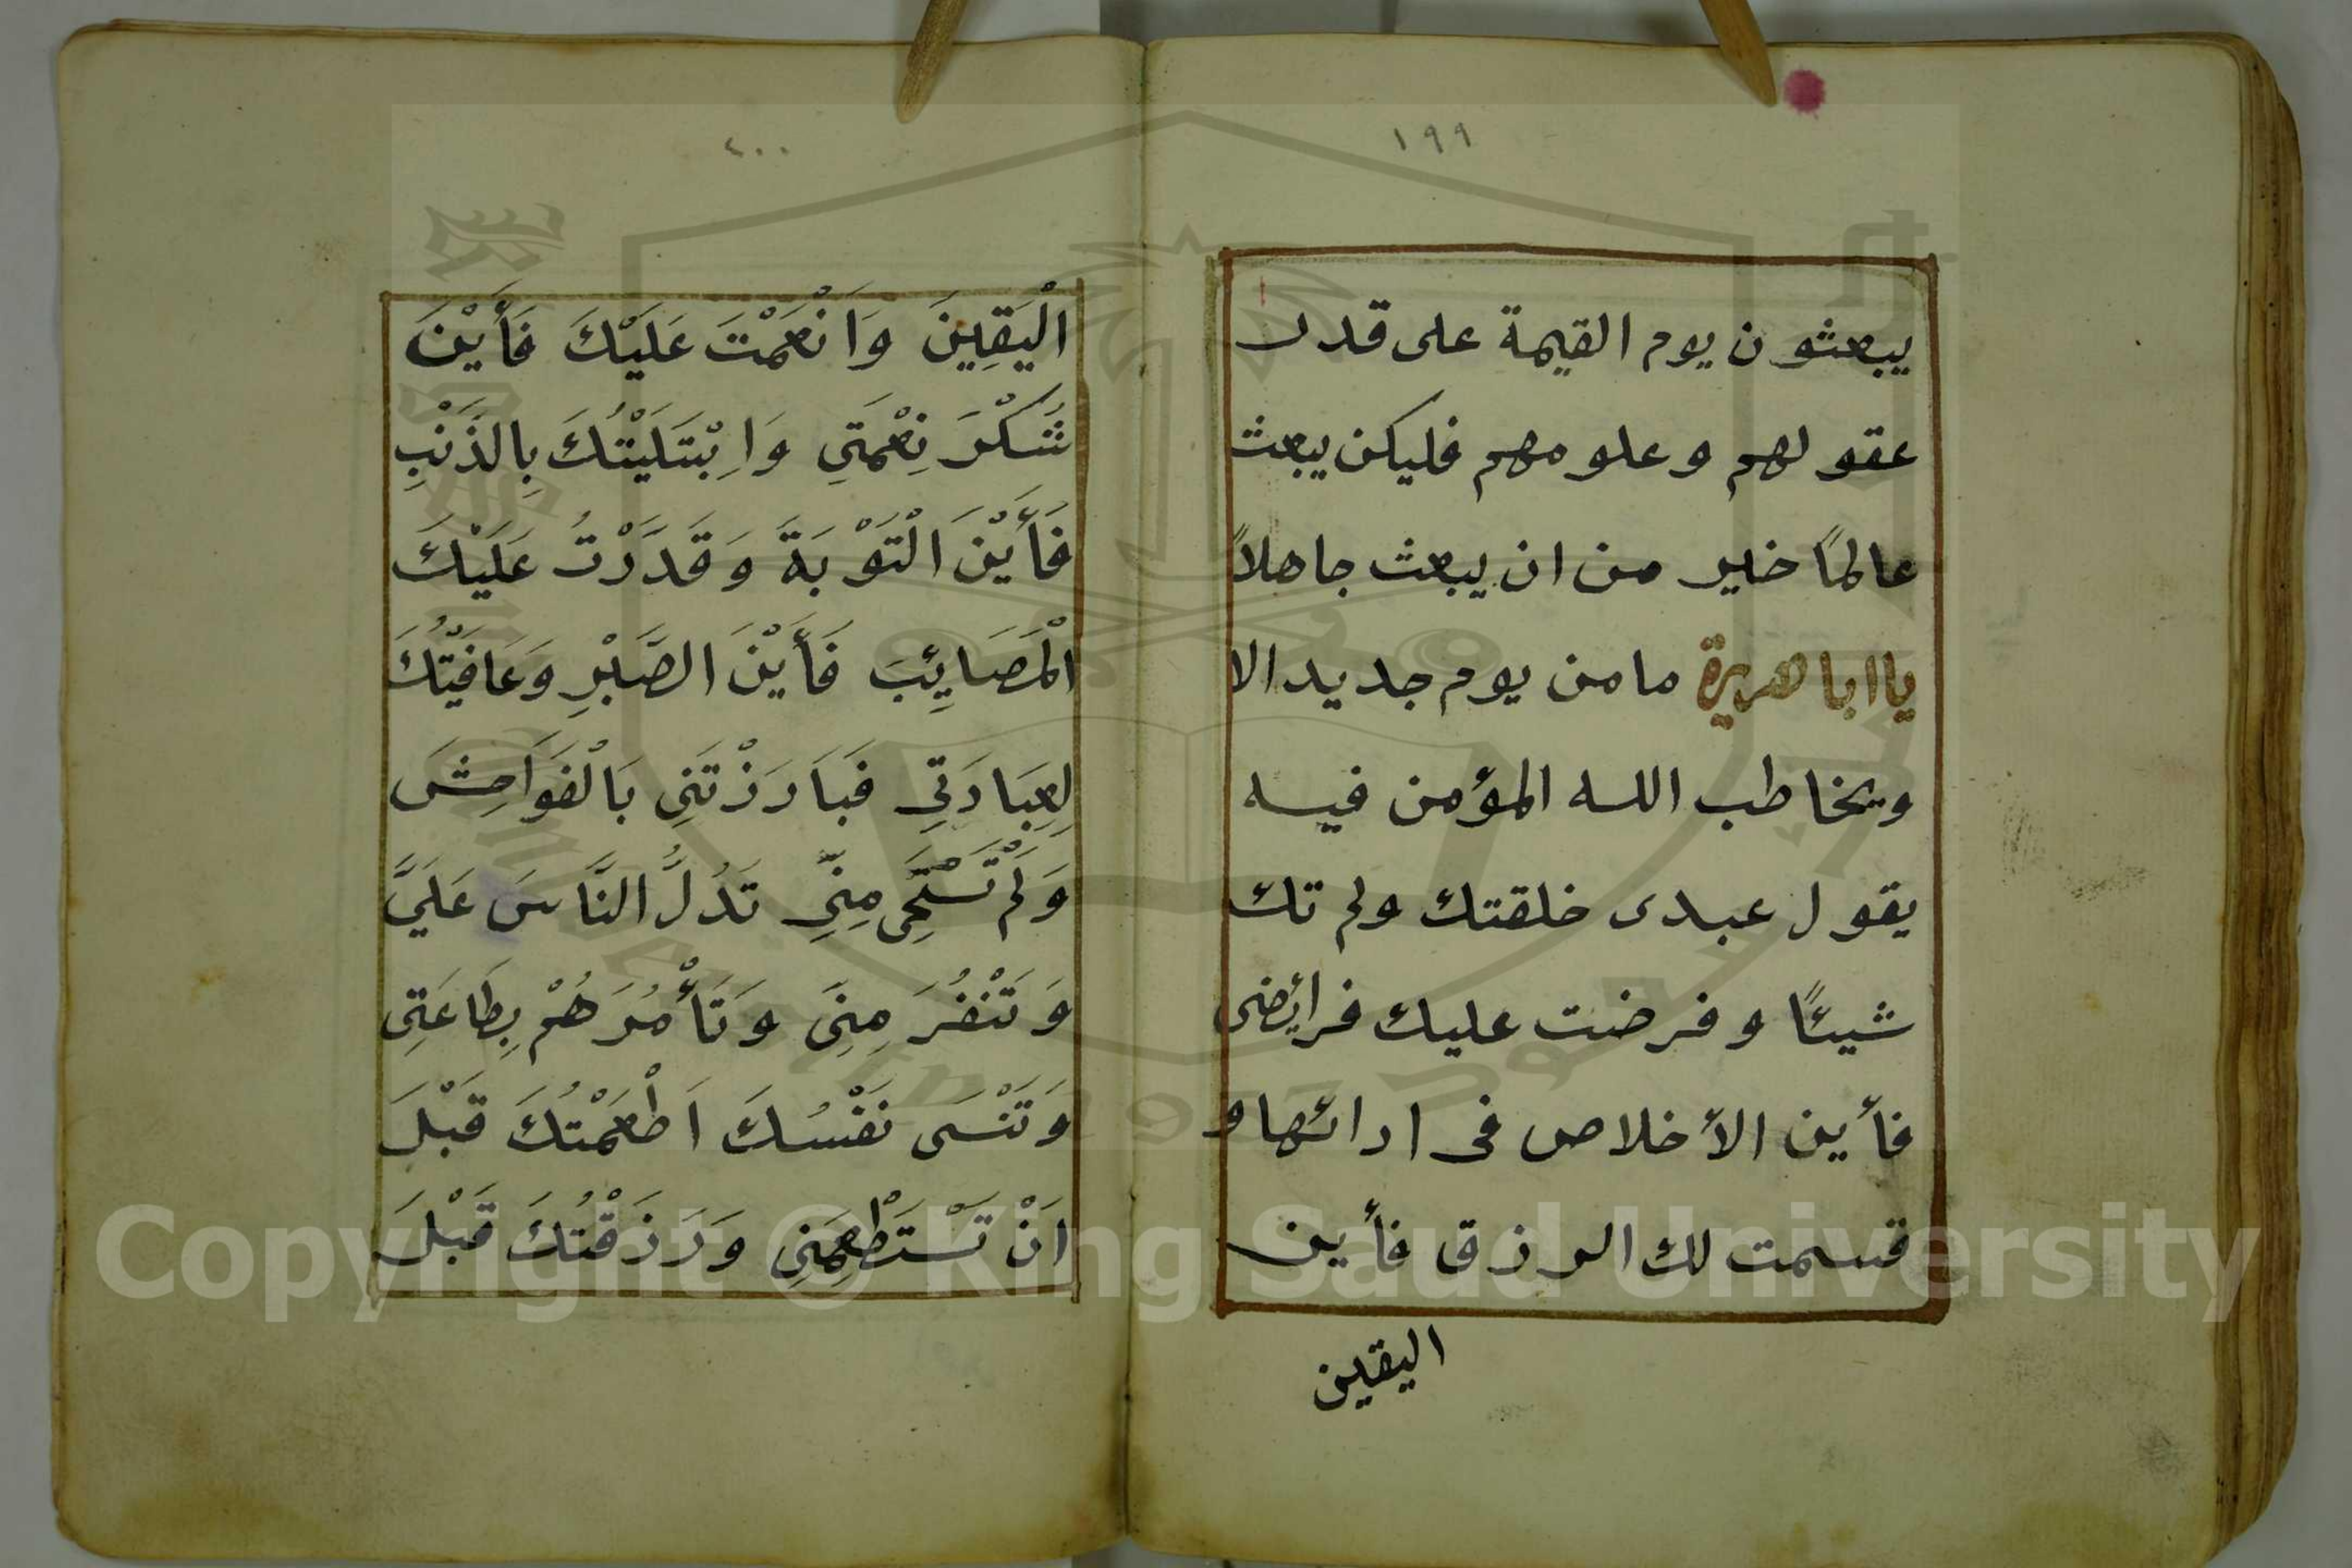 ١٩٩
يبعثون يوم القيمة على قدر
عقولهم وعلومهم فليكن يبعث
عالمًا خير من ان يبعث جاهلاً
يا ابا هريرة ما من يوم جديد الا
ويخاطب الله المؤمن فيه
يقول عبدى خلقتك ولم تك
شيئًا وفرضت عليك فرائضى
فأين الأخلاص فى ادائها و
قسمت لك الرزق فأين
اليقين
٤٠٠
الْيَقِينَ وَاَنْعَمْتَ عَلَيْكَ فَأَيْنَ
شَكْرَ نِعْمَتَىِ وَاِبْتَلَيْتُكَ بِالذَنْبِ
فَأَيْنَ الْتَوْبَةَ وَقَدَرْتُ عَلَيْكَ
الْمَصَائِبَ فَأَيْنَ الصَّبْرِ وَعَافَيْتُكَ
لِعِبَادَتِي فَبَارَزْتَنِى بَالْفَوَاحِشَ
وَلَمْ تَسْتَحِى مِنِّى تَدُلُّ النَّاسَ عَلَىَّ
وَتَنْفُرَ مِنِىَّ وَتَأْمُرَهُمْ بِطَاعَتِى
وَتَنْسَى نَفْسُكَ اَطْعَمْتُكَ قَبْلَ
اَنْ تَسْتَطْعِمَنِى وَرَزَقْتُكَ قَبْلَ
Copyright © King Saud University